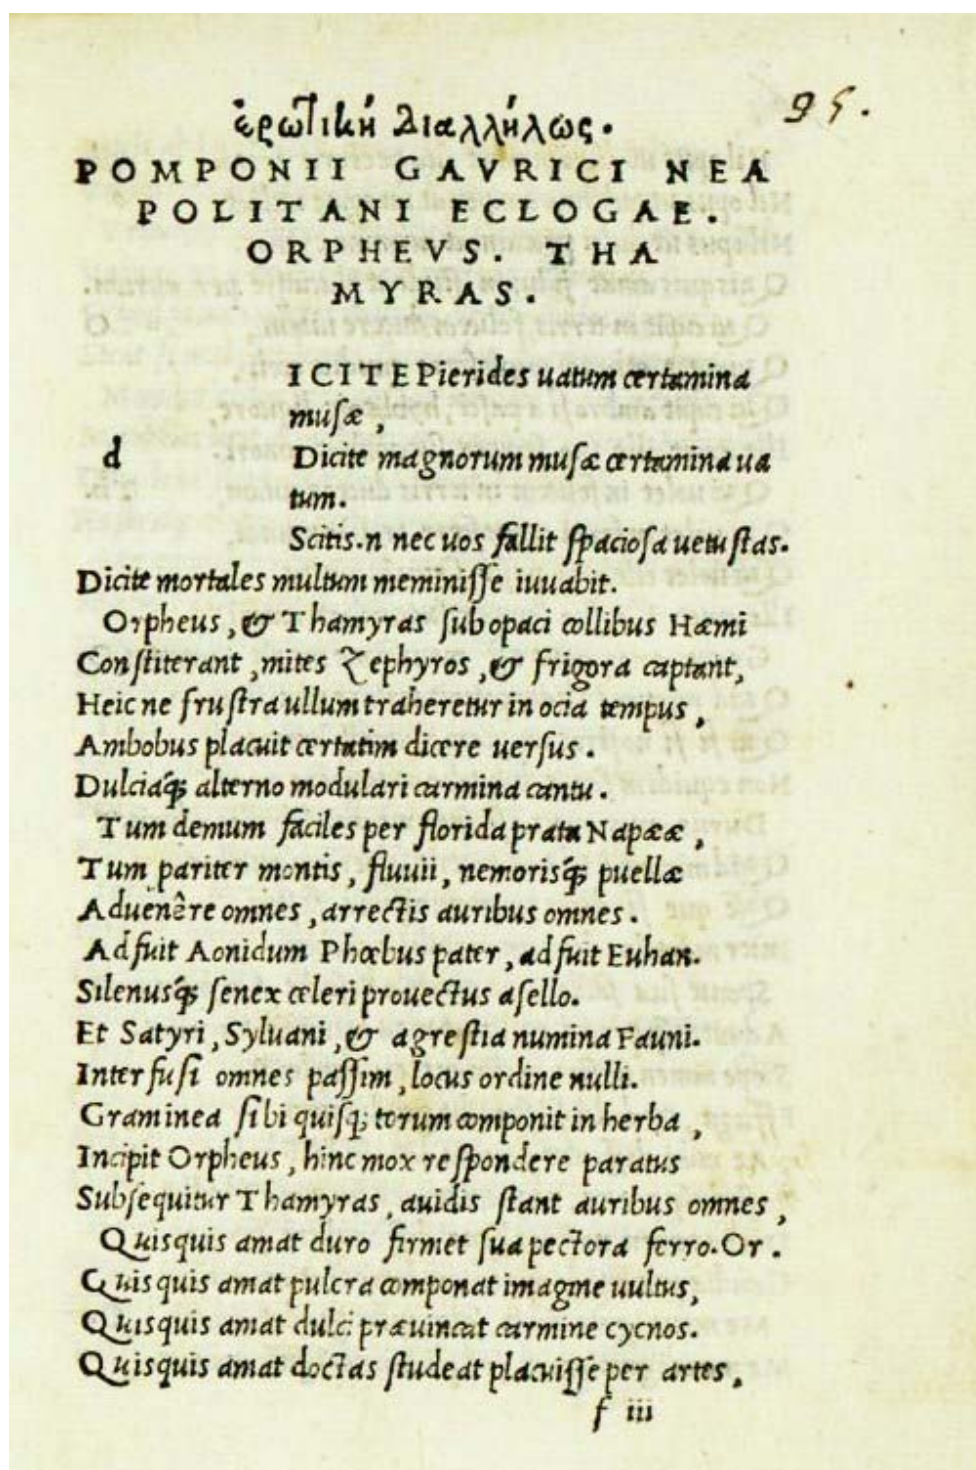 95.
ἐρωτικὴ Διαλλήλως.
POMPONII GAVRICI NEA
POLITANI ECLOGAE.
ORPHEVS. THA
MYRAS.
ICITE Pierides uatum certamina
musæ,
d Dicite magnorum musæ certamina ua
tum.
Scitis.n nec uos fallit spaciosa uetustas.
Dicite mortales multum meminisse iuuabit.
Orpheus, & Thamyras sub opaci collibus Hæmi
Constiterant, mites Zephyros, & frigora captant,
Heic ne frustra ullum traheretur in ocia tempus,
Ambobus placuit certatim dicere uersus.
Dulciaq; alterno modulari carmina cantu.
Tum demum faciles per florida prata Napææ,
Tum pariter montis, fluuii, nemorisq; puellæ
Aduenêre omnes, arrectis auribus omnes.
Adfuit Aonidum Phœbus pater, adfuit Euhan.
Silenusq; senex celeri prouectus asello.
Et Satyri, Syluani, & agrestia numina Fauni.
Interfusi omnes passim, locus ordine nulli.
Graminea sibi quisq; torum componit in herba,
Incipit Orpheus, hinc mox respondere paratus
Subsequitur Thamyras, auidis stant auribus omnes,
Quisquis amat duro firmet sua pectora ferro. Or.
Quisquis amat pulcra componat imagine uultus,
Quisquis amat dulci præuincat carmine cycnos.
Quisquis amat doctas studeat placuisse per artes,
f iii